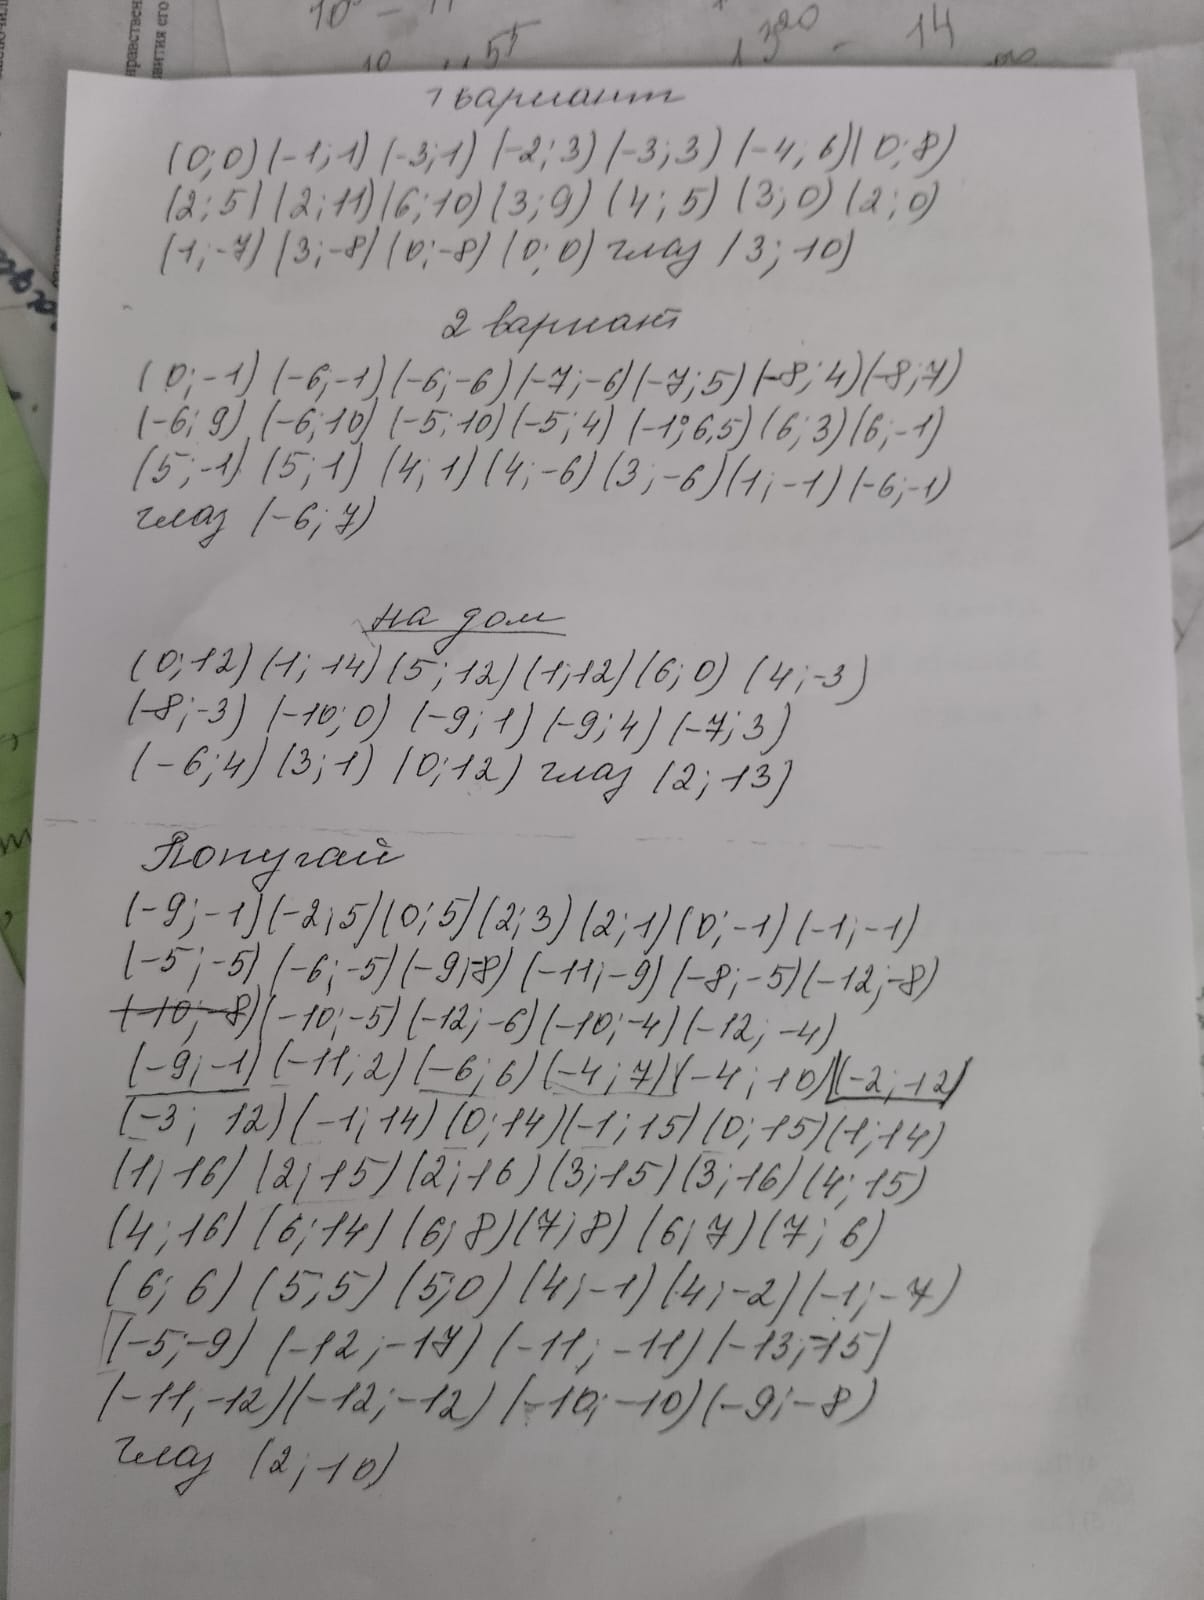 10⁵ -
5⁵
3²⁰ - 14
нравствен
вития его
1 вариант
(0;0) (-1;1) (-3;1) (-2;3) (-3;3) (-4;6) (0;8)
(2;5) (2;11) (6;10) (3;9) (4;5) (3;0) (2;0)
(1;-7) (3;-8) (0;-8) (0;0) глаз (3;10)
2 вариант
(0;-1) (-6;-1) (-6;-6) (-7;-6) (-7;5) (-8;4) (-8;7)
(-6;9) (-6;10) (-5;10) (-5;4) (-1;6,5) (6;3) (6;-1)
(5;-1) (5;1) (4;1) (4;-6) (3;-6) (1;-1) (-6;-1)
глаз (-6;7)
на дом
(0;12) (1;14) (5;12) (1;12) (6;0) (4;-3)
(-8;-3) (-10;0) (-9;1) (-9;4) (-7;3)
(-6;4) (3;1) (0;12) глаз (2;13)
Попугай
(-9;-1) (-2;5) (0;5) (2;3) (2;1) (0;-1) (-1;-1)
(-5;-5) (-6;-5) (-9;-8) (-11;-9) (-8;-5) (-12;-8)
(-10;-8) (-10;-5) (-12;-6) (-10;-4) (-12;-4)
(-9;-1) (-11;2) (-6;6) (-4;7) (-4;10) (-2;12)
(-3;12) (-1;14) (0;14) (-1;15) (0;15) (1;14)
(1;16) (2;15) (2;16) (3;15) (3;16) (4;15)
(4;16) (6;14) (6;8) (7;8) (6;7) (7;6)
(6;6) (5;5) (5;0) (4;-1) (4;-2) (-1;-7)
(-5;-9) (-12;-17) (-11;-11) (-13;-15)
(-11;-12) (-12;-12) (-10;-10) (-9;-8)
глаз (2;10)